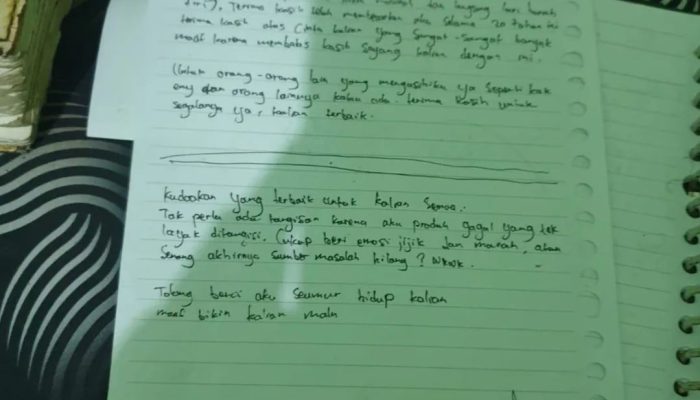 ini), Terima kasih telah selama 20 tahun ini
terima kasih atas Cinta kalian yang Sangat-Sangat banyak
maaf karena membalas kasih Sayang kalian dengan ini.
Untuk orang-orang lain yang mengasihiku ya Seperti kak
dan orang lainnya kalau ada. terima kasih untuk
segalanya ya, kalian terbaik.
Kudoakan yang terbaik untuk kalian Semua.
Tak perlu ada tangisan karena aku produk gagal yang tak
layak ditangisi. Cukup beri emosi jijik dan marah, atau
Senang akhirnya Sumber masalah hilang? Wkwk.
Tolong benci aku Seumur hidup kalian
maaf bikin kalian malu